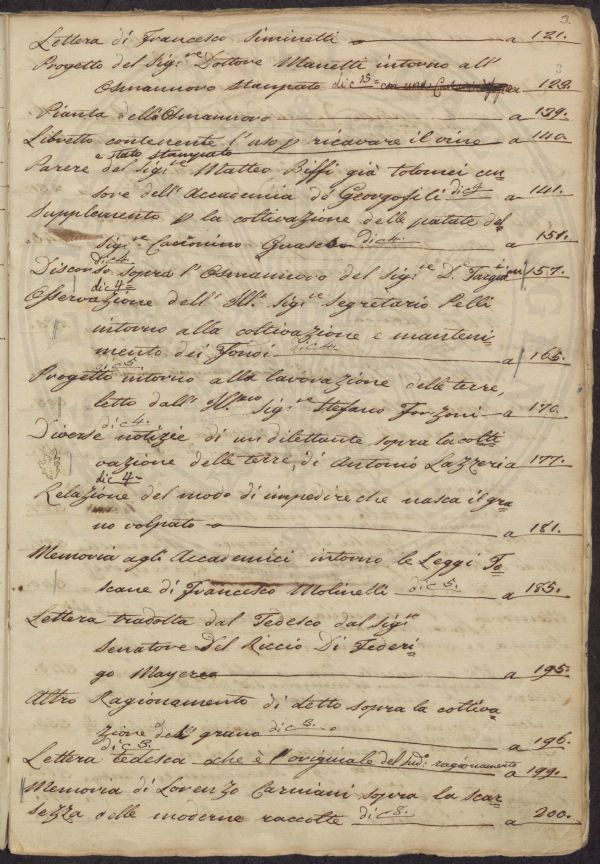 3.
Lettera di Francesco Siminetti — a 121.
Progetto del Sig:re Dottore Manetti intorno all'
3
Osmannoro stampato di c 15 = con una a 123.
Pianta dell'Osmannoro — a 139.
Libretto contenente l'uso p ricavare il vino — a 140.
e stato stampato
Parere del Sig:re Matteo Biffi già tolomei cen=
sore dell'Accademia de Georgofili di c 4 — a 141.
Supplemento p la coltivazione delle patate del
Sig:re Guasco di c 4. — a 151.
di c 4
Discorso sopra l'Osmannoro del Sig:re D. Targioni 157.
di c 4 =
Osservazione dell' Ill: Sig:re Segretario Pelli
intorno alla coltivazione e manteni=
mento dei Fondi di c 4. — a 165.
di c 5.
Progetto intorno alla lavorazione delle terre,
letto dall' Ill:mo Sig:re Stefano Forzoni — a 170.
di c 4.
Diverse notizie di un dilettante sopra la colti
vazione delle terre, di Antonio Lazzeri a 177.
di c 4 =
Relazione del modo di impedire che nasca il gra=
no volpato — a 181.
Memoria agli Accademici intorno le Leggi To=
scane di Francesco Molinelli di c 5. — a 185.
Lettera tradotta dal Tedesco dal Sig:re
Senatore Del Riccio Di Federi=
go Mayer — a 195.
Altro Ragionamento di detto sopra la coltiva=
zione del grano di c 3. — a 196.
di c 3.
Lettera tedesca che è l'originale del sud: ragionamento a 199.
Memoria di Lorenzo Carmiani sopra la scar=
sezza delle moderne raccolte di c 8. — a 200.